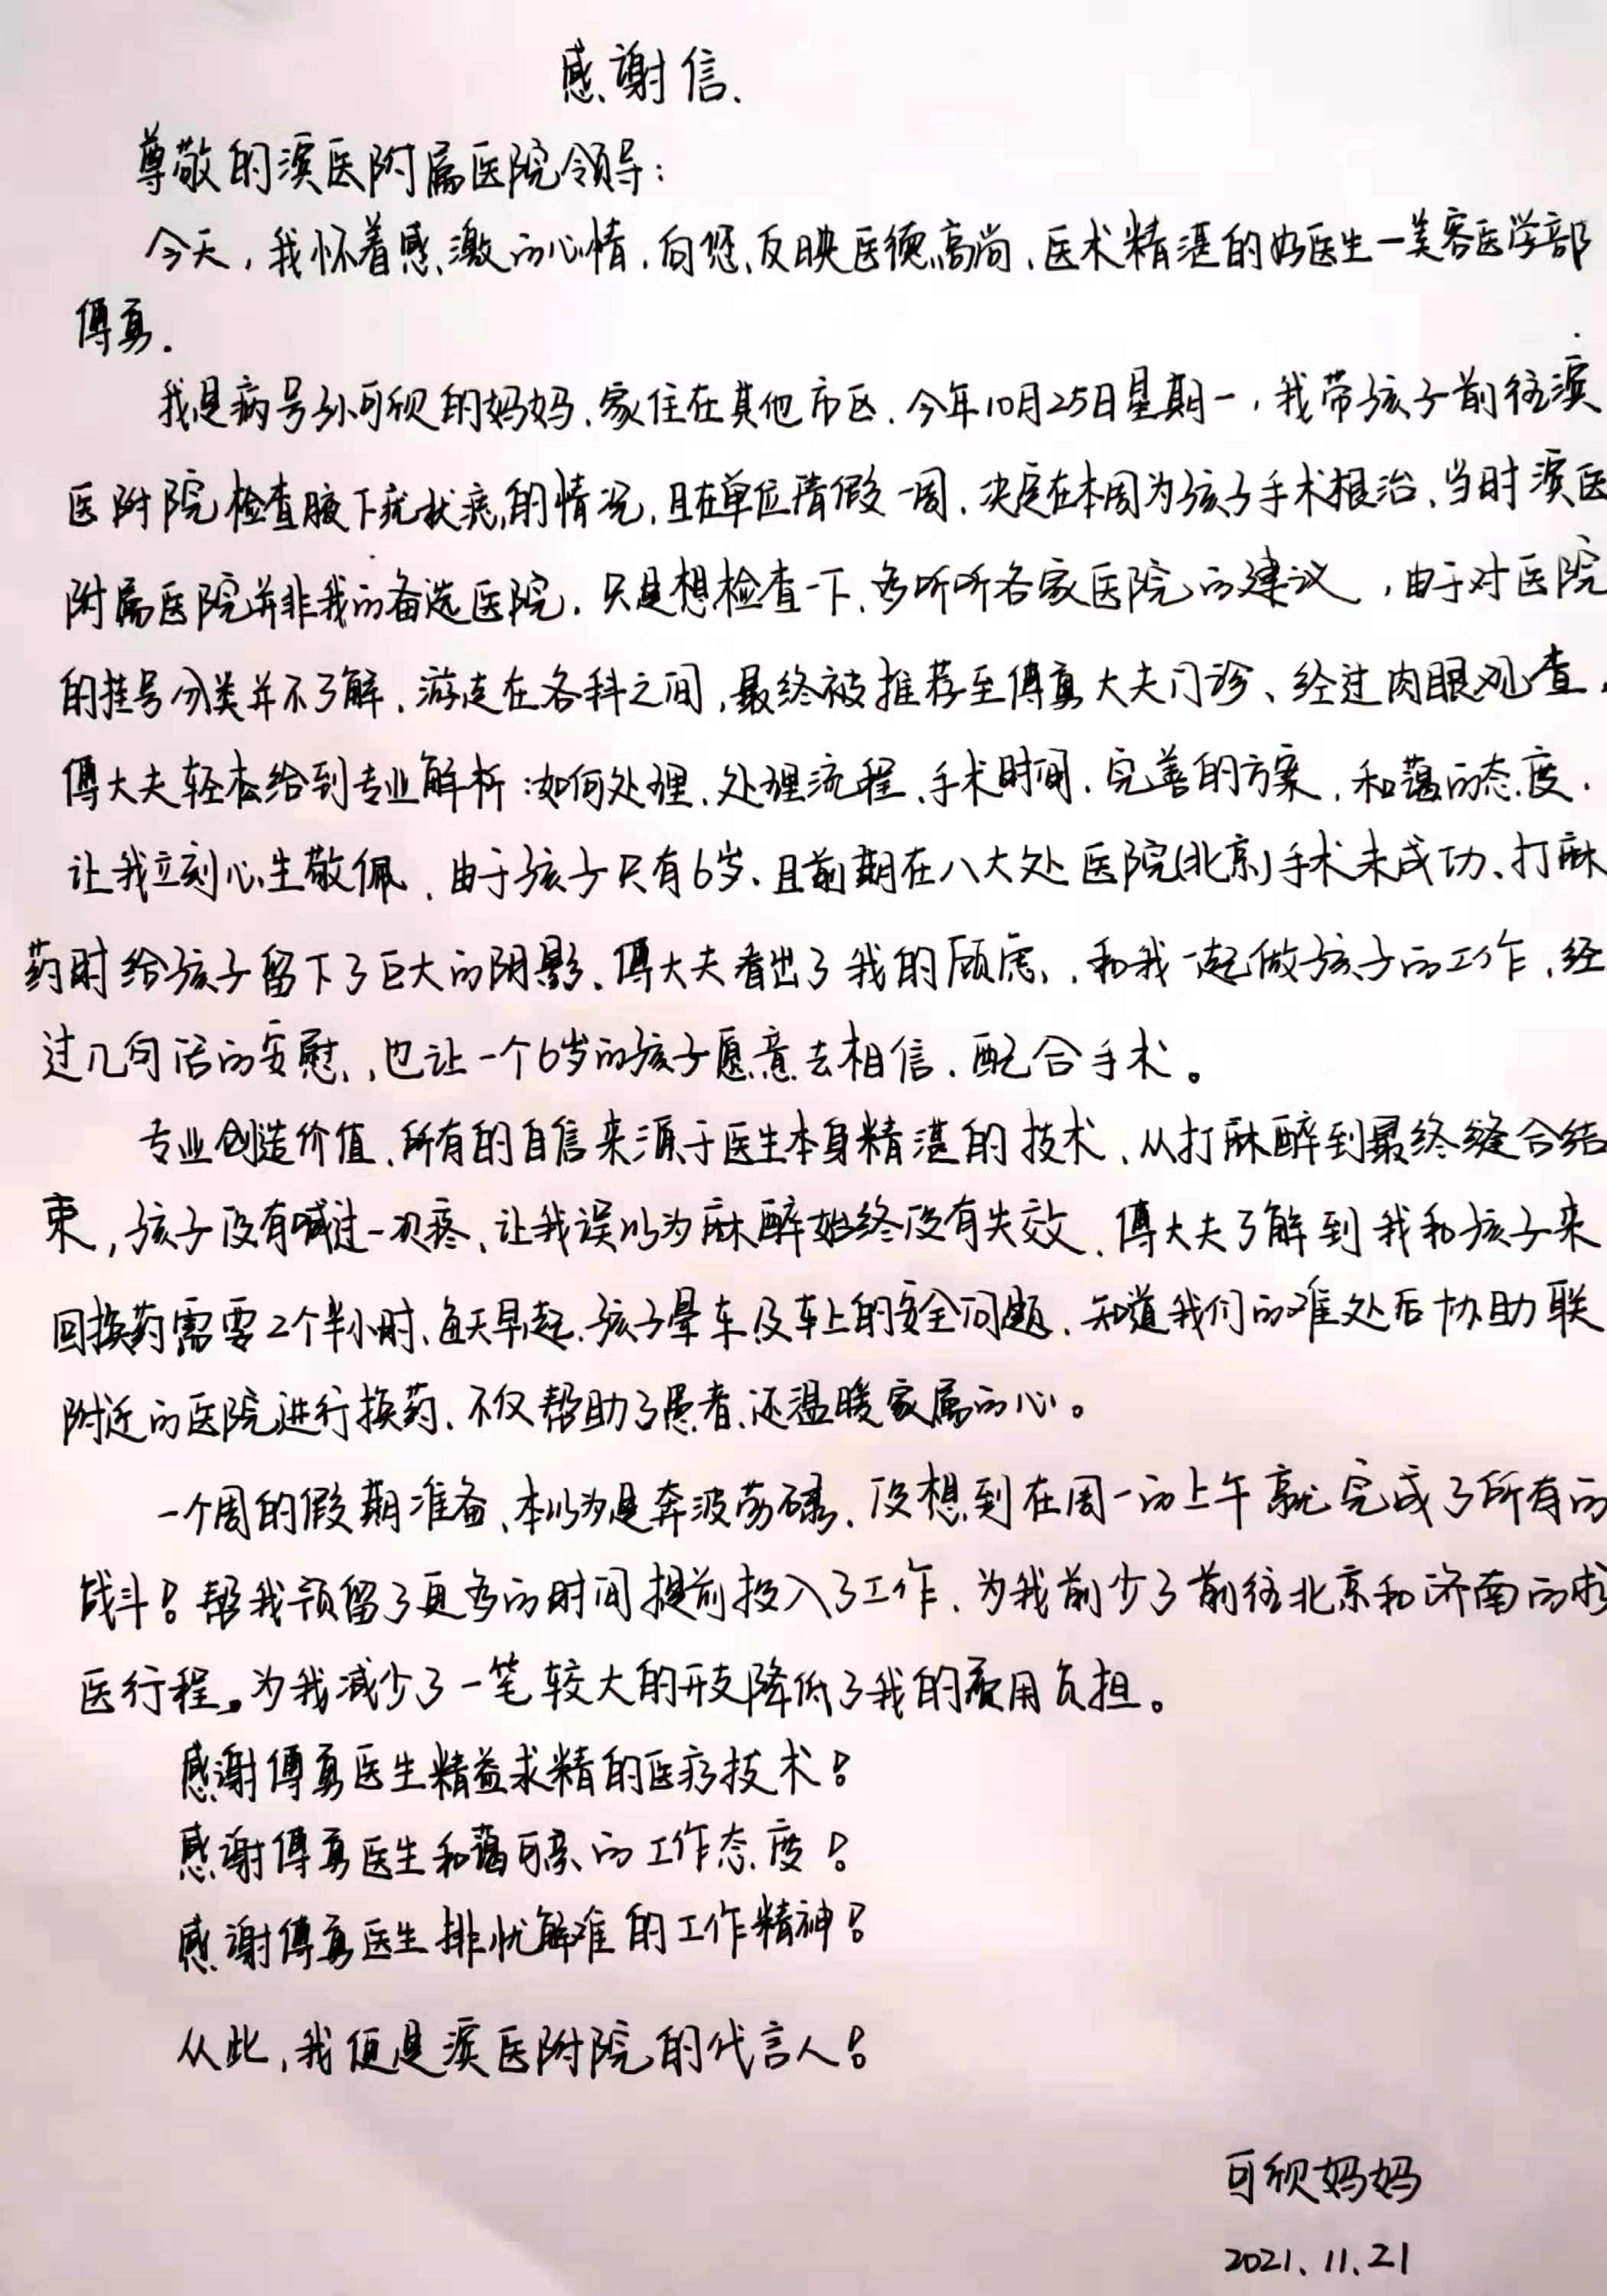 感谢信.
尊敬的滨医附属医院领导:
今天,我怀着感激的心情.向您反映医德高尚、医术精湛的好医生一美容医学部
傅真.
我是病号孙可欣的妈妈.家住在其他市区.今年10月25日星期一,我带孩子前往滨
医附院检查腋下疣状痣的情况,且在单位请假一周.决定在本周为孩子手术根治.当时滨医
附属医院并非我的备选医院.只是想检查一下、多听听各家医院的建议,由于对医院
的挂号分类并不了解.游走在各科之间,最终被推荐至傅真大夫门诊、经过肉眼观查,
傅大夫轻松给到专业解析:如何处理、处理流程、手术时间.完善的方案,和蔼的态度.
让我立刻心生敬佩.由于孩子只有6岁、且前期在八大处医院(北京)手术未成功、打麻
药时给孩子留下了巨大的阴影、傅大夫看出了我的顾虑,和我一起做孩子的工作、经
过几句话的安慰,也让一个6岁的孩子愿意去相信.配合手术。
专业创造价值、所有的自信来源于医生本身精湛的技术、从打麻醉到最终缝合结
束,孩子没有喊过一次疼、让我误以为麻醉始终没有失效、傅大夫了解到我和孩子来
回换药需要2个半小时、每天早起.孩子晕车及车上的安全问题、知道我们的难处后协助联
附近的医院进行换药、不仅帮助了患者.还温暖家属的心。
一个周的假期准备、本以为是奔波劳碌、没想到在周一的上午就完成了所有的
战斗!帮我预留了更多的时间提前投入了工作、为我前少了前往北京和济南的求
医行程。为我减少了一笔较大的开支降低了我的费用负担。
感谢傅真医生精益求精的医疗技术!
感谢傅真医生和蔼可亲的工作态度!
感谢傅真医生排忧解难的工作精神!
从此,我便是滨医附院的代言人!
可欣妈妈
2021.11.21